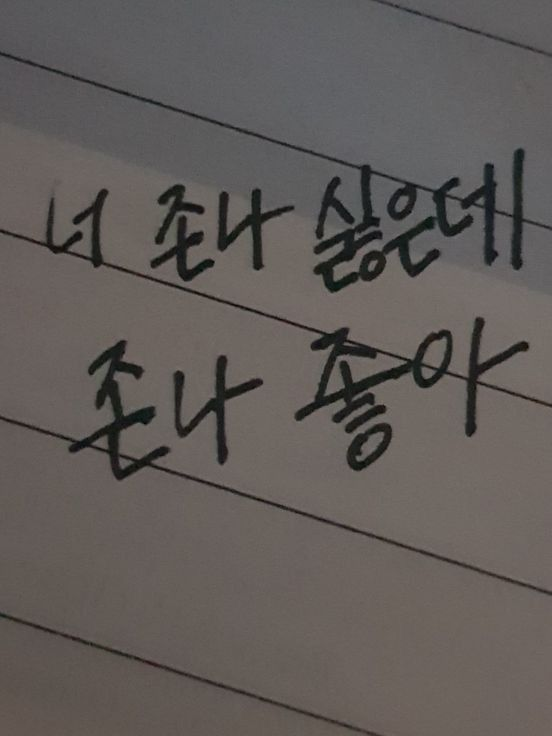 너 존나 싫은데
존나 좋아